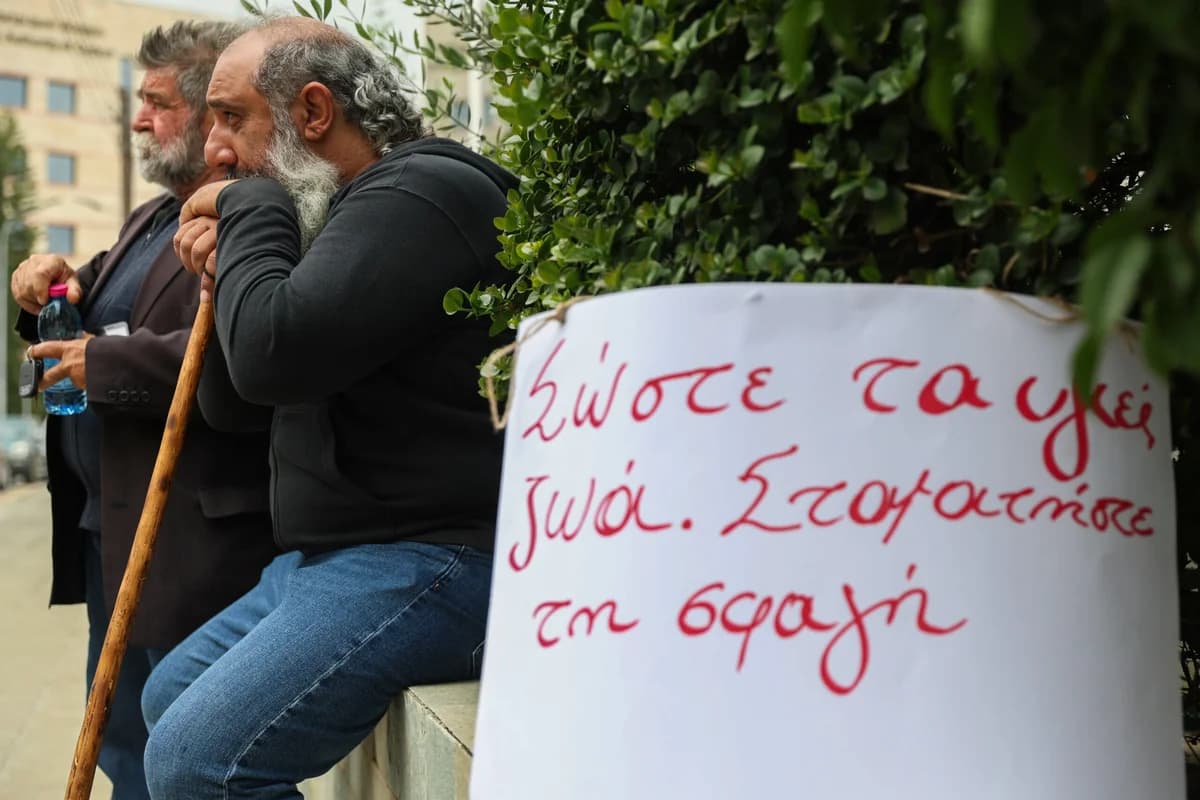 Σώστε τα υγιεί
ζωά. Σταματήστε
τη σφαγή